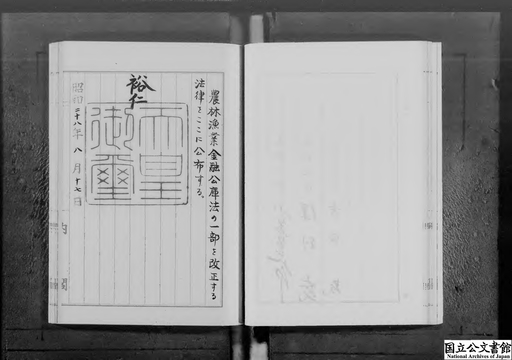 農林漁業金融公庫法の一部を改正する
法律をここに公布する。
裕仁
天皇
御璽
昭和二十八年八月十七日
国立公文書館
National Archives of Japan